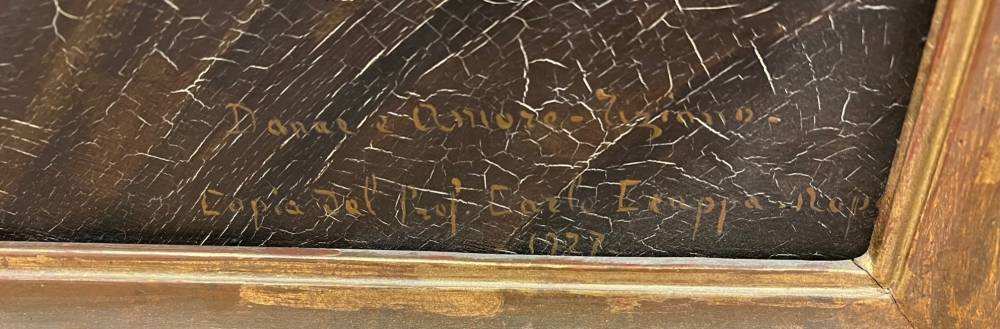 Danae e Amore - Tiziano -
Copia del Prof. Carlo Crappa - Nap